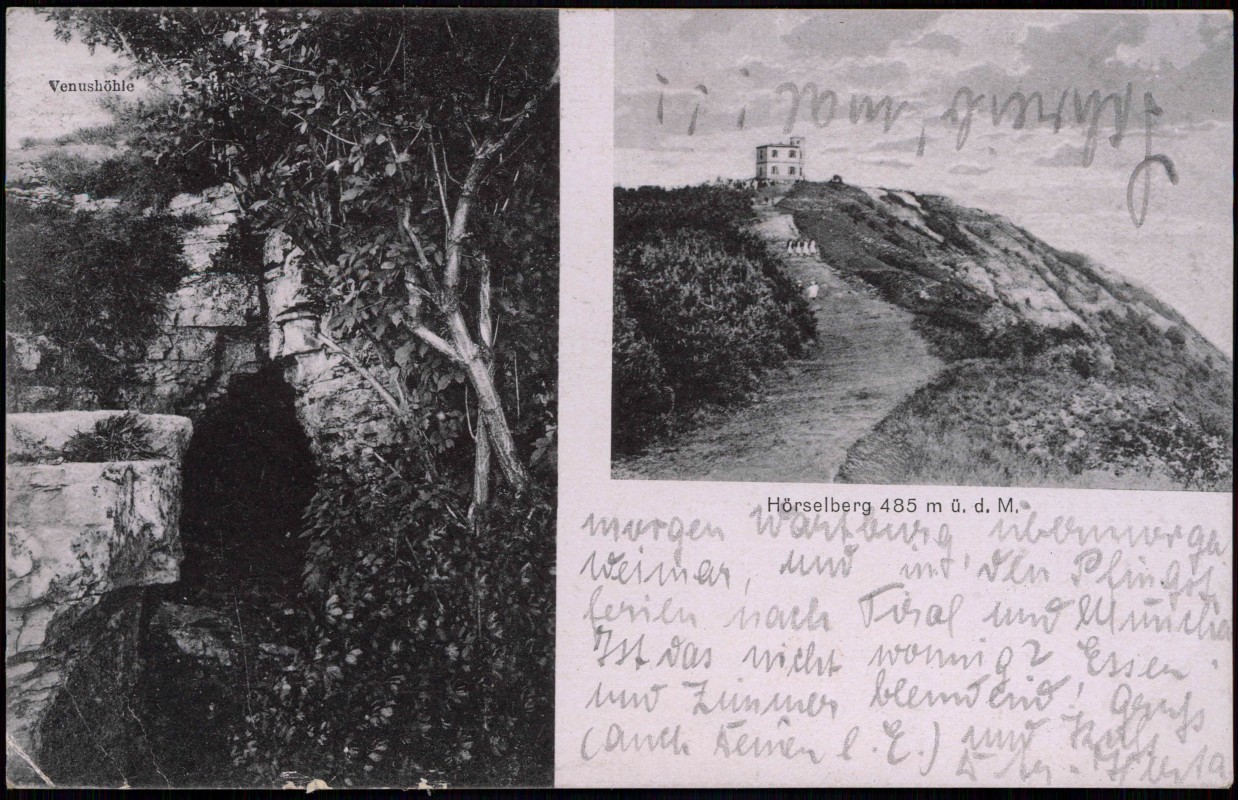 Venushöhle
Hörselberg 485 m ü. d. M.
morgen Wartburg übermorge
Weimar, und in den Pfingst
ferien nach Tirol und Münche
Ist das nicht wonnig? Essen
und Zimmer blendend! Gruß
(auch Deinen l. E.) und Kuß
Herta